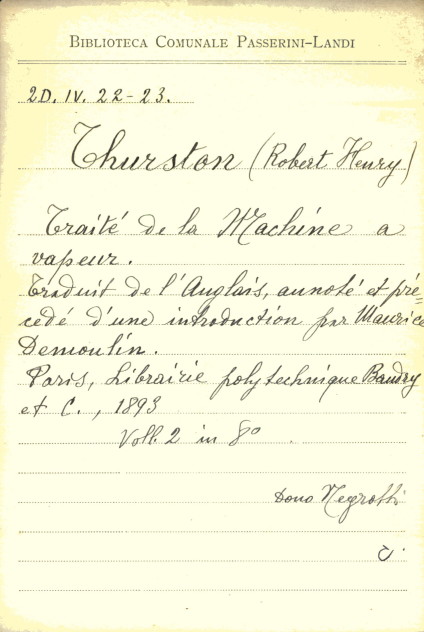 BIBLIOTECA COMUNALE PASSERINI-LANDI
2D. IV. 22-23.
Thurston (Robert Henry)
Traité de la Machine a
vapeur.
Traduit de l'Anglais, annoté et pré=
cedé d'une introduction par Maurice
Demoulin.
Paris, Librairie polytechnique Baudry
et C., 1893
Voll. 2 in 8º
Dono Negrotti